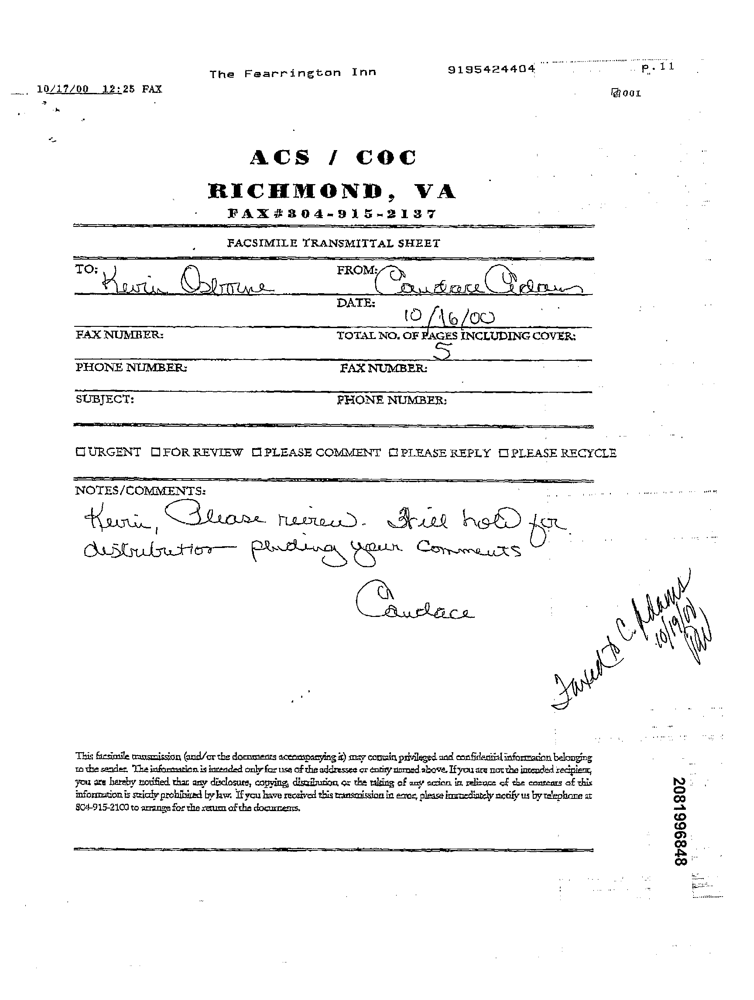 The Fearrington Inn 9195424404 p.11
10/17/00 12:25 FAX 001
ACS / COC
RICHMOND, VA
FAX#804-915-2137
FACSIMILE TRANSMITTAL SHEET
TO: Kevin Osborne FROM: Candace Adams
DATE: 10/16/00
FAX NUMBER: TOTAL NO. OF PAGES INCLUDING COVER: 5
PHONE NUMBER: FAX NUMBER:
SUBJECT: PHONE NUMBER:
☐URGENT ☐FOR REVIEW ☐PLEASE COMMENT ☐PLEASE REPLY ☐PLEASE RECYCLE
NOTES/COMMENTS:
Kevin, Please review. I'll hold for
distribution pending your comments
Candace
Faxed to C. Adams
10/19/00
This facsimile transmission (and/or the documents accompanying it) may contain privileged and confidential information belonging
to the sender. The information is intended only for use of the addressee or entity named above. If you are not the intended recipient,
you are hereby notified that any disclosure, copying, distribution or the taking of any action in reliance of the contents of this
information is strictly prohibited by law. If you have received this transmission in error, please immediately notify us by telephone at
804-915-2100 to arrange for the return of the documents.
2081996848